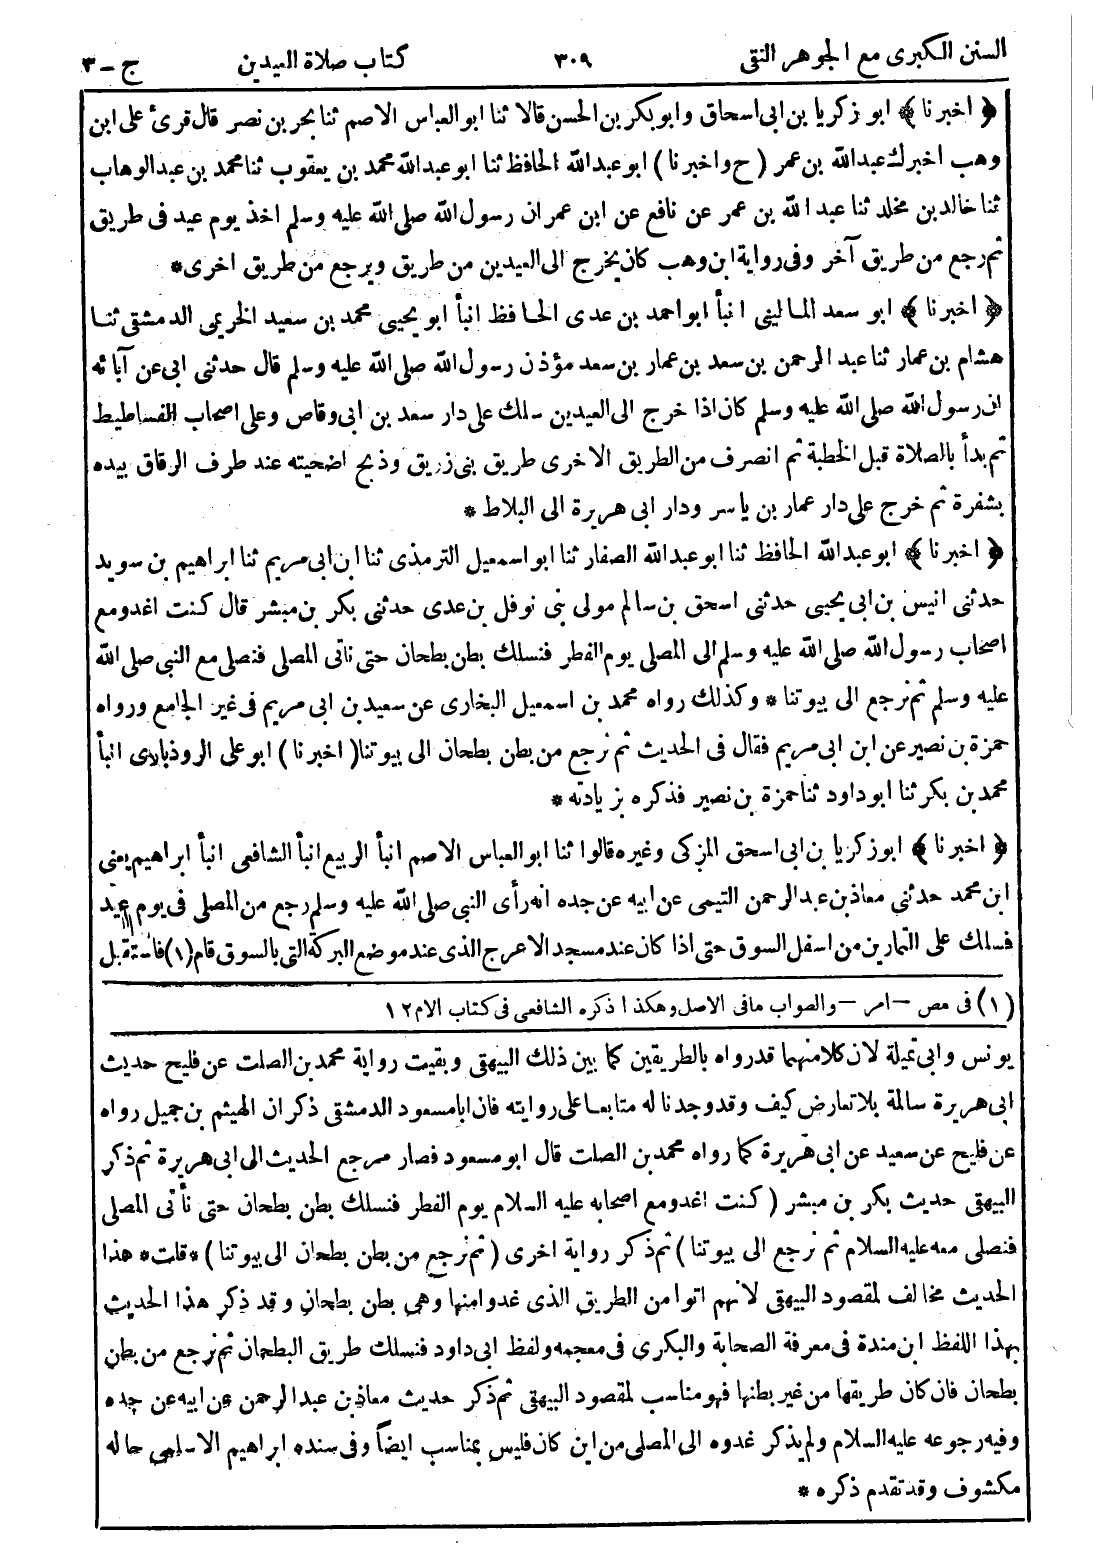 السنن الكبرى مع الجوهر النقى ٣٠٩ كتاب صلاة العيدين ج - ٣
﴿ اخبرنا ﴾ ابو زكريا بن ابى اسحاق وابوبكر بن الحسن قالا ثنا ابو العباس الاصم ثنا بحر بن نصر قال قرئ على ابن
وهب اخبرك عبدالله بن عمر ( ح واخبرنا ) ابو عبدالله الحافظ ثنا ابو عبدالله محمد بن يعقوب ثنا محمد بن عبدالوهاب
ثنا خالد بن مخلد ثنا عبد الله بن عمر عن نافع عن ابن عمر ان رسول الله صلى الله عليه وسلم اخذ يوم عيد فى طريق
ثم رجع من طريق آخر وفى رواية ابن وهب كان يخرج الى العيدين من طريق ويرجع من طريق اخرى *
﴿ اخبرنا ﴾ ابو سعد المالينى انبأ ابو احمد بن عدى الحافظ انبأ ابو يحيى محمد بن سعيد الخريمى الدمشقى ثنا
هشام بن عمار ثنا عبد الرحمن بن سعد بن عمار بن سعد مؤذن رسول الله صلى الله عليه وسلم قال حدثنى ابى عن آبائه
ان رسول الله صلى الله عليه وسلم كان اذا خرج الى العيدين سلك على دار سعد بن ابى وقاص وعلى اصحاب الفساطيط
ثم بدأ بالصلاة قبل الخطبة ثم انصرف من الطريق الاخرى طريق بنى زريق وذبح اضحيته عند طرف الزقاق بيده
بشفرة ثم خرج على دار عمار بن ياسر ودار ابى هريرة الى البلاط *
﴿ اخبرنا ﴾ ابو عبدالله الحافظ ثنا ابو عبدالله الصفار ثنا ابو اسمعيل الترمذى ثنا ابن ابى مريم ثنا ابراهيم بن سويد
حدثنى انيس بن ابى يحيى حدثنى اسحق بن سالم مولى بنى نوفل بن عدى حدثنى بكر بن مبشر قال كنت اغدو مع
اصحاب رسول الله صلى الله عليه وسلم الى المصلى يوم الفطر فنسلك بطن بطحان حتى نأتى المصلى فنصلى مع النبى صلى الله
عليه وسلم ثم نرجع الى بيوتنا * وكذلك رواه محمد بن اسمعيل البخارى عن سعيد بن ابى مريم فى غير الجامع ورواه
حمزة بن نصير عن ابن ابى مريم فقال فى الحديث ثم نرجع من بطن بطحان الى بيوتنا ( اخبرنا ) ابو على الروذبارى انبأ
محمد بن بكر ثنا ابو داود ثنا حمزة بن نصير فذكره بزيادته *
﴿ اخبرنا ﴾ ابو زكريا بن ابى اسحق المزكى وغيره قالوا ثنا ابو العباس الاصم انبأ الربيع انبأ الشافعى انبأ ابراهيم يعنى
ابن محمد حدثنى معاذ بن عبد الرحمن التيمى عن ابيه عن جده انه رأى النبى صلى الله عليه وسلم رجع من المصلى فى يوم عيد
فسلك على التمارين من اسفل السوق حتى اذا كان عند مسجد الاعرج الذى عند موضع البركة التى بالسوق قام (١) فاستقبل
(١) فى مص - امر - والصواب مافى الاصل وهكذا ذكره الشافعى فى كتاب الام ١٢
يونس وابى تميلة لان كلا منهما قد رواه بالطريقين كما بين ذلك البيهقى وبقيت رواية محمد بن الصلت عن فليح حديث
ابى هريرة سالمة بلا تعارض كيف وقد وجدنا له متابعا على روايته فان ابا مسعود الدمشقى ذكر ان الهيثم بن جميل رواه
عن فليح عن سعيد عن ابى هريرة كما رواه محمد بن الصلت قال ابو مسعود فصار مرجع الحديث الى ابى هريرة ثم ذكر
البيهقى حديث بكر بن مبشر ( كنت اغدو مع اصحابه عليه السلام يوم الفطر فنسلك بطن بطحان حتى نأتى المصلى
فنصلى معه عليه السلام ثم نرجع الى بيوتنا ) ثم ذكر رواية اخرى ( ثم نرجع من بطن بطحان الى بيوتنا ) * قلت * هذا
الحديث مخالف لمقصود البيهقى لانهم اتوا من الطريق الذى غدوا منها وهى بطن بطحان وقد ذكر هذا الحديث
بهذا اللفظ ابن مندة فى معرفة الصحابة والبكرى فى معجمه ولفظ ابى داود فنسلك طريق البطحان ثم نرجع من بطن
بطحان فان كان طريقها من غير بطنها فهو مناسب لمقصود البيهقى ثم ذكر حديث معاذ بن عبد الرحمن عن ابيه عن جده
وفيه رجوعه عليه السلام ولم يذكر غدوه الى المصلى من اين كان فليس بمناسب ايضاً وفى سنده ابراهيم الاسلمى حاله
مكشوف وقد تقدم ذكره *